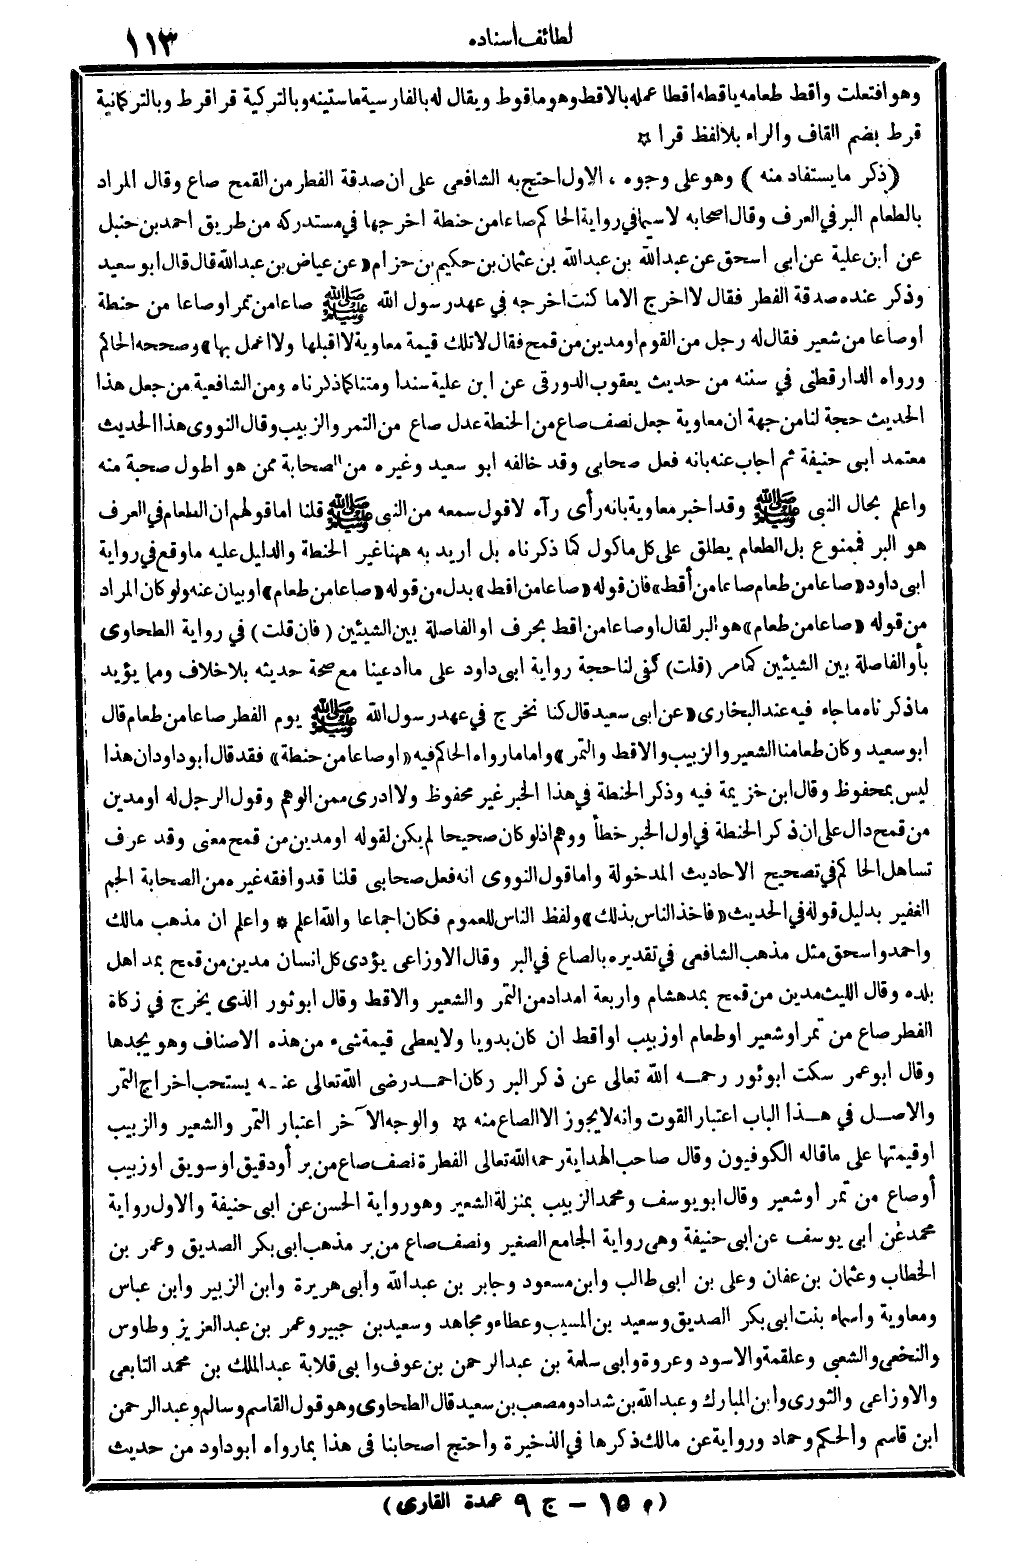 لطائف أسناده ١١٣
وهو افتعلت وأقط طعامه يأقطه أقطا عمله بالاقط وهو مأقوط ويقال له بالفارسية ماستينه وبالتركية قراقرط وبالتركمانية
قرط بضم القاف والراء بلا لفظ قرا ☆
(ذكر ما يستفاد منه) وهو على وجوه ، الاول احتج به الشافعى على ان صدقة الفطر من القمح صاع وقال المراد
بالطعام البر في العرف وقال اصحابه لا سيما في رواية الحاكم صاعا من حنطة اخرجها في مستدركه من طريق احمد بن حنبل
عن ابن علية عن ابى اسحق عن عبد الله بن عبد الله بن عثمان بن حكيم بن حزام «عن عياض بن عبد الله قال قال ابو سعيد
وذكر عنده صدقة الفطر فقال لا اخرج الا ما كنت اخرجه في عهد رسول الله ﷺ صاعا من تمر او صاعا من حنطة
او صاعا من شعير فقال له رجل من القوم او مدين من قمح فقال لا تلك قيمة معاوية لا اقبلها ولا اعمل بها» وصححه الحاكم
ورواه الدارقطنى في سننه من حديث يعقوب الدورقى عن ابن علية سندا ومتنا كما ذكرناه ومن الشافعية من جعل هذا
الحديث حجة لنا من جهة ان معاوية جعل نصف صاع من الحنطة عدل صاع من التمر والزبيب وقال النووى هذا الحديث
معتمد ابى حنيفة ثم اجاب عنه بانه فعل صحابى وقد خالفه ابو سعيد وغيره من الصحابة ممن هو اطول صحبة منه
واعلم بحال النبى ﷺ وقد اخبر معاوية بانه رأى رآه لا قول سمعه من النبى ﷺ قلنا اما قولهم ان الطعام في العرف
هو البر فممنوع بل الطعام يطلق على كل مأكول كما ذكرناه بل اريد به ههنا غير الحنطة والدليل عليه ما وقع في رواية
ابى داود «صاعا من طعام صاعا من أقط» فان قوله «صاعا من اقط» بدل من قوله «صاعا من طعام» او بيان عنه ولو كان المراد
من قوله «صاعا من طعام» هو البر لقال او صاعا من اقط بحرف او الفاصلة بين الشيئين (فان قلت) في رواية الطحاوى
بأو الفاصلة بين الشيئين كما مر (قلت) كفى لنا حجة رواية ابى داود على ما ادعينا مع صحة حديثه بلا خلاف ومما يؤيد
ما ذكرناه ما جاء فيه عند البخارى «عن ابى سعيد قال كنا نخرج في عهد رسول الله ﷺ يوم الفطر صاعا من طعام قال
ابو سعيد وكان طعامنا الشعير والزبيب والاقط والتمر» واما ما رواه الحاكم فيه «او صاعا من حنطة» فقد قال ابو داود ان هذا
ليس بمحفوظ وقال ابن خزيمة فيه وذكر الحنطة في هذا الخبر غير محفوظ ولا ادرى ممن الوهم وقول الرجل له او مدين
من قمح دال على ان ذكر الحنطة في اول الخبر خطأ ووهم اذ لو كان صحيحا لم يكن لقوله او مدين من قمح معنى وقد عرف
تساهل الحاكم في تصحيح الاحاديث المدخولة واما قول النووى انه فعل صحابى قلنا قد وافقه غيره من الصحابة الجم
الغفير بدليل قوله في الحديث «فاخذ الناس بذلك» ولفظ الناس للعموم فكان اجماعا والله اعلم * واعلم ان مذهب مالك
واحمد واسحق مثل مذهب الشافعى في تقديره بالصاع في البر وقال الاوزاعى يؤدى كل انسان مدين من قمح بمد اهل
بلده وقال الليث مدين من قمح بمد هشام واربعة امداد من التمر والشعير والاقط وقال ابو ثور الذى يخرج في زكاة
الفطر صاع من تمر او شعير او طعام او زبيب او اقط ان كان بدويا ولا يعطى قيمة شىء من هذه الاصناف وهو يجدها
وقال ابو عمر سكت ابو ثور رحمه الله تعالى عن ذكر البر وكان احمد رضى الله تعالى عنه يستحب اخراج التمر
والاصل في هذا الباب اعتبار القوت وانه لا يجوز الا الصاع منه ☆ والوجه الآخر اعتبار التمر والشعير والزبيب
او قيمتها على ما قاله الكوفيون وقال صاحب الهداية رحمه الله تعالى الفطرة نصف صاع من بر أو دقيق او سويق او زبيب
أو صاع من تمر أو شعير وقال ابو يوسف ومحمد الزبيب بمنزلة الشعير وهو رواية الحسن عن ابى حنيفة والاول رواية
محمد عن ابى يوسف عن ابى حنيفة وهى رواية الجامع الصغير ونصف صاع من بر مذهب ابى بكر الصديق وعمر بن
الخطاب وعثمان بن عفان وعلى بن ابى طالب وابن مسعود وجابر بن عبد الله وأبى هريرة وابن الزبير وابن عباس
ومعاوية واسماء بنت ابى بكر الصديق وسعيد بن المسيب وعطاء ومجاهد وسعيد بن جبير وعمر بن عبد العزيز وطاوس
والنخعى والشعبى وعلقمة والاسود وعروة وابى سلمة بن عبد الرحمن بن عوف وابى قلابة عبد الملك بن محمد التابعى
والاوزاعى والثورى وابن المبارك وعبد الله بن شداد ومصعب بن سعيد قال الطحاوى وهو قول القاسم وسالم وعبد الرحمن
ابن قاسم والحكم وحماد ورواية عن مالك ذكرها في الذخيرة واحتج اصحابنا فى هذا بما رواه ابو داود من حديث
(م ١٥ – ج ٩ عمدة القارى)